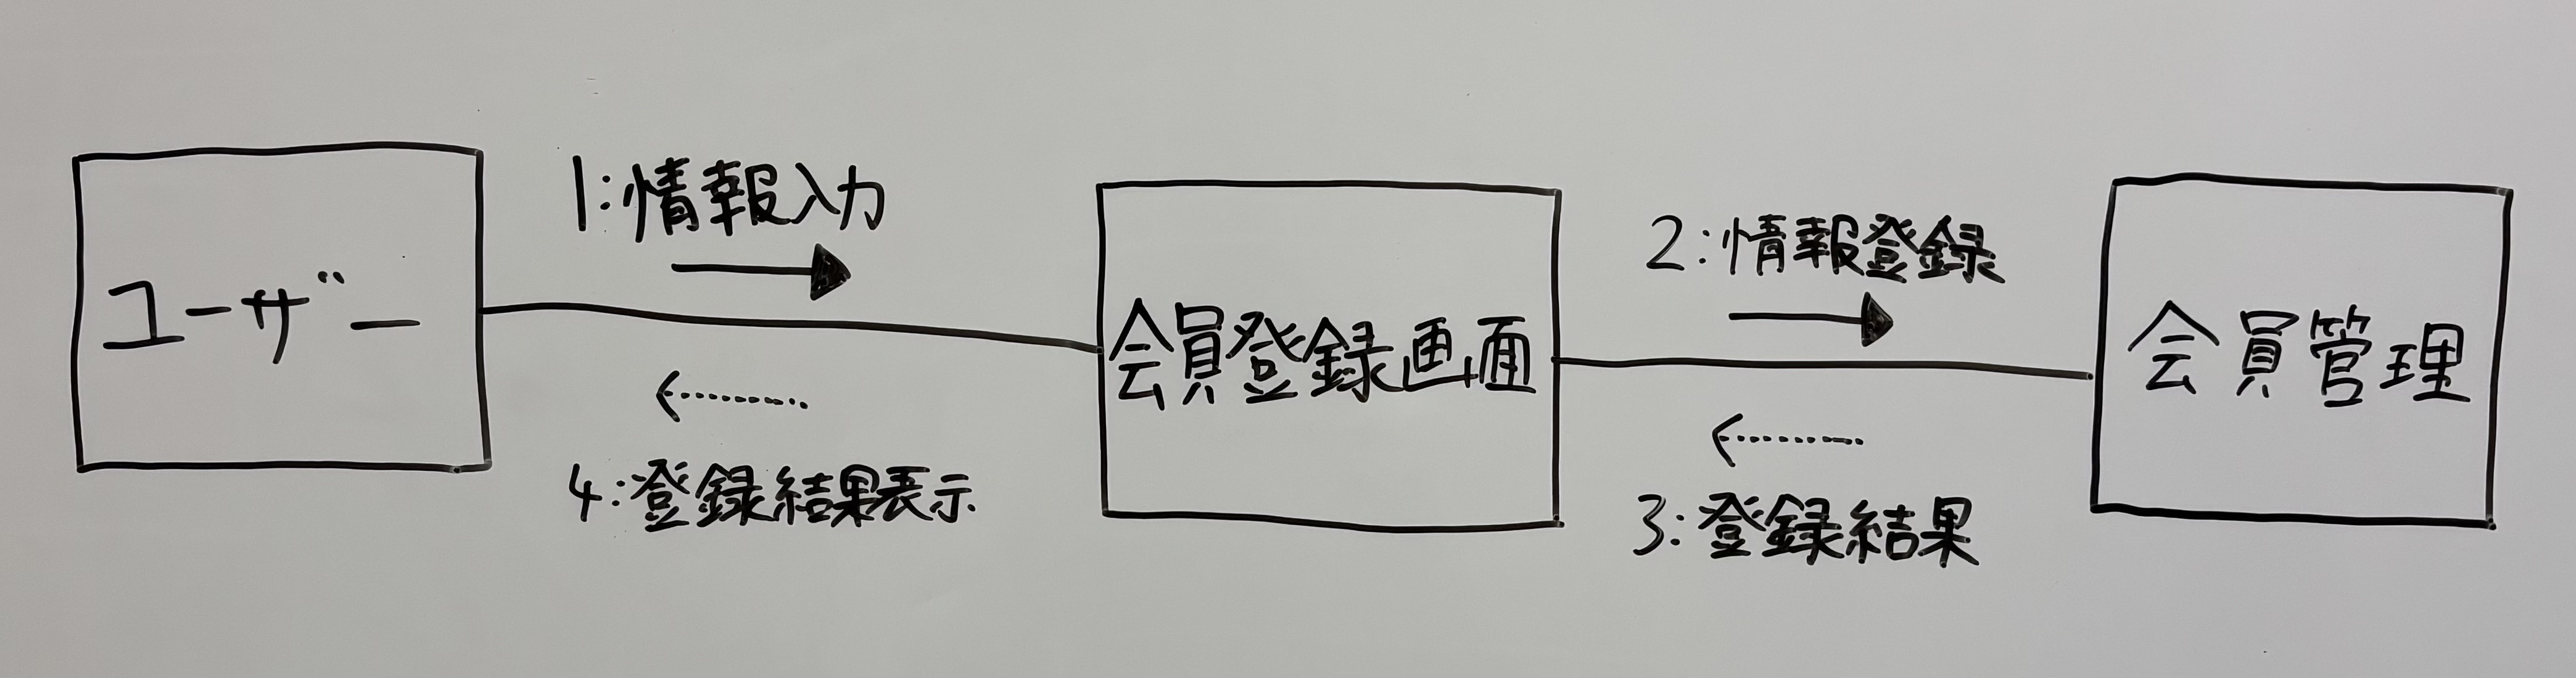 ユーザー
1:情報入力
4:登録結果表示
会員登録画面
2:情報登録
3:登録結果
会員管理